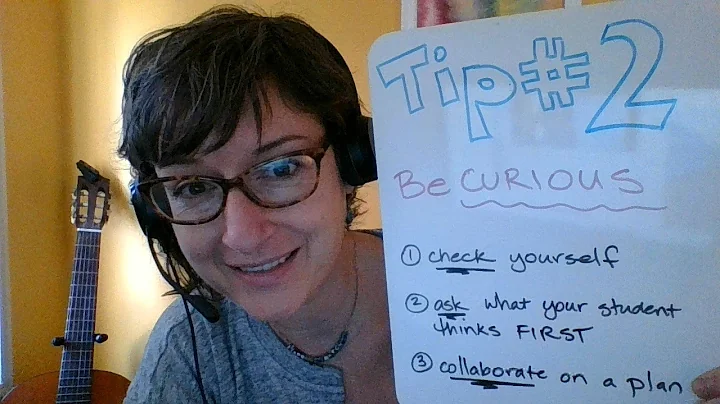 Tip #2
Be CURIOUS
① check yourself
② ask what your student
thinks FIRST
③ collaborate on a plan